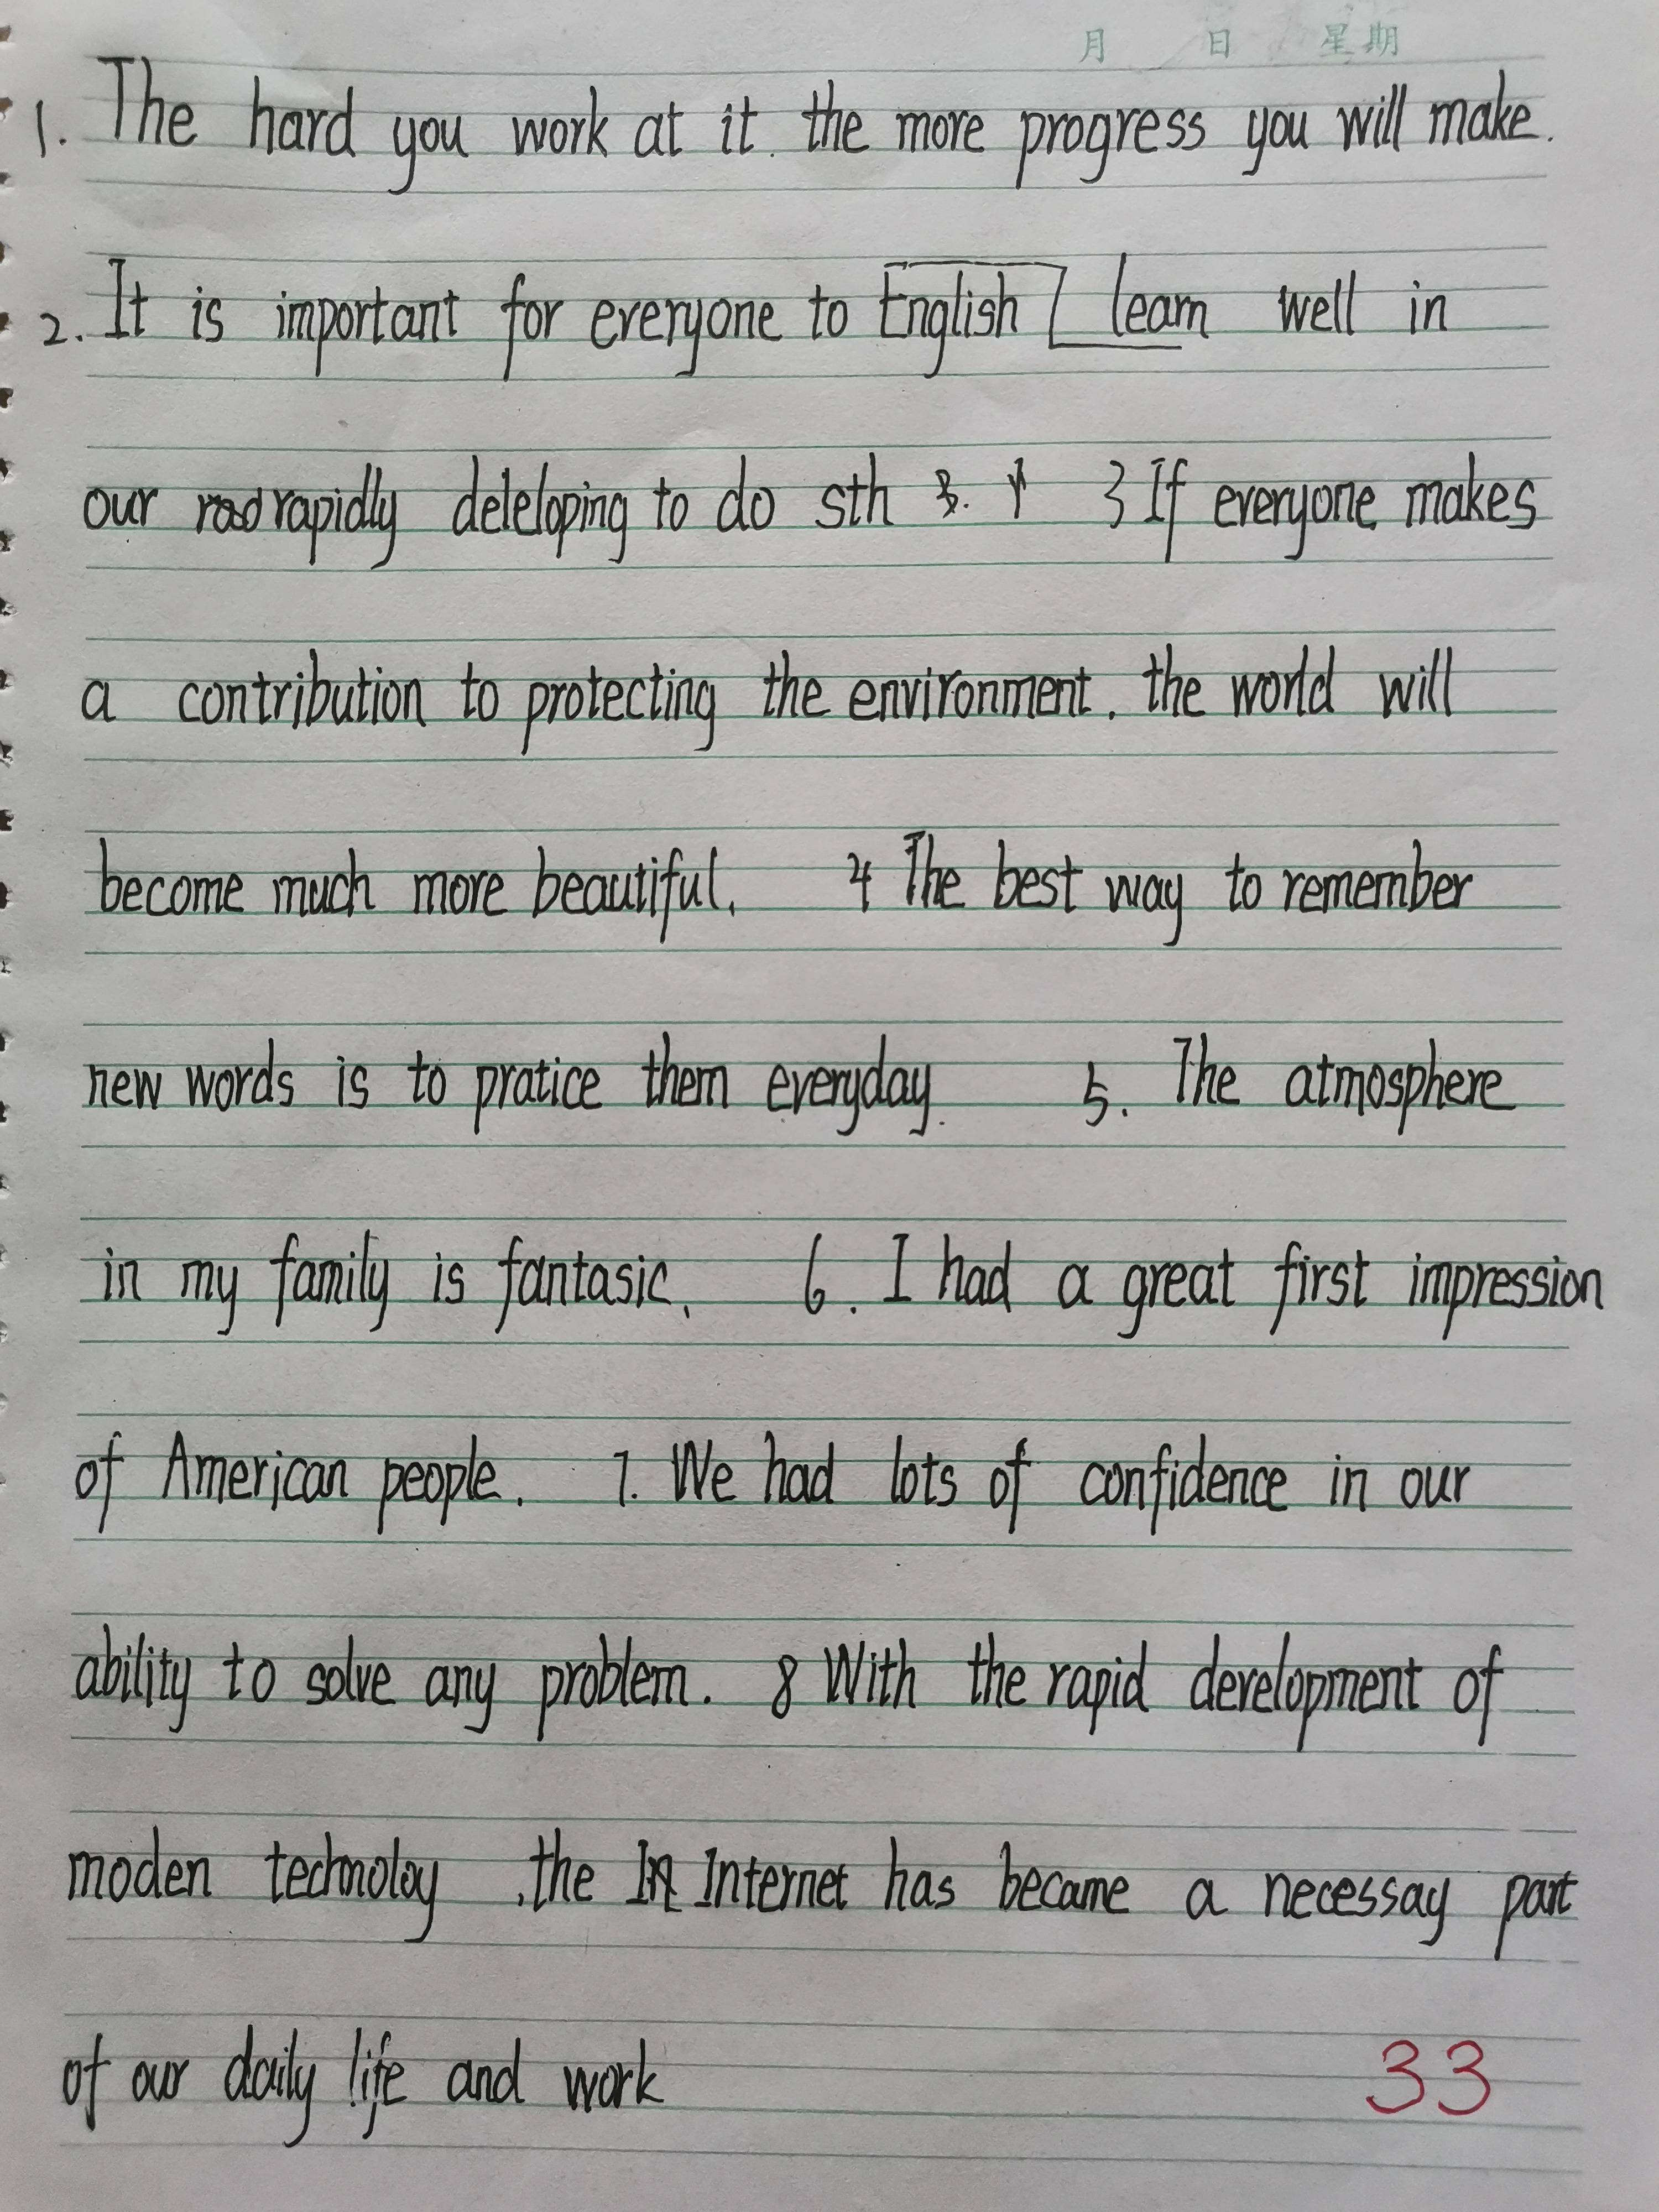 月 日 星期
1. The hard you work at it. the more progress you will make.
2. It is important for everyone to English learn well in
our rapidly deleloping to do sth 3 If everyone makes
a contribution to protecting the environment. the world will
become much more beautiful. 4 The best way to remember
new words is to pratice them everyday. 5. The atmosphere
in my family is fantasic. 6. I had a great first impression
of American people. 7. We had lots of confidence in our
ability to solve any problem. 8 With the rapid development of
moden technoloy ,the Internet has became a necessay part
of our daily life and work
33